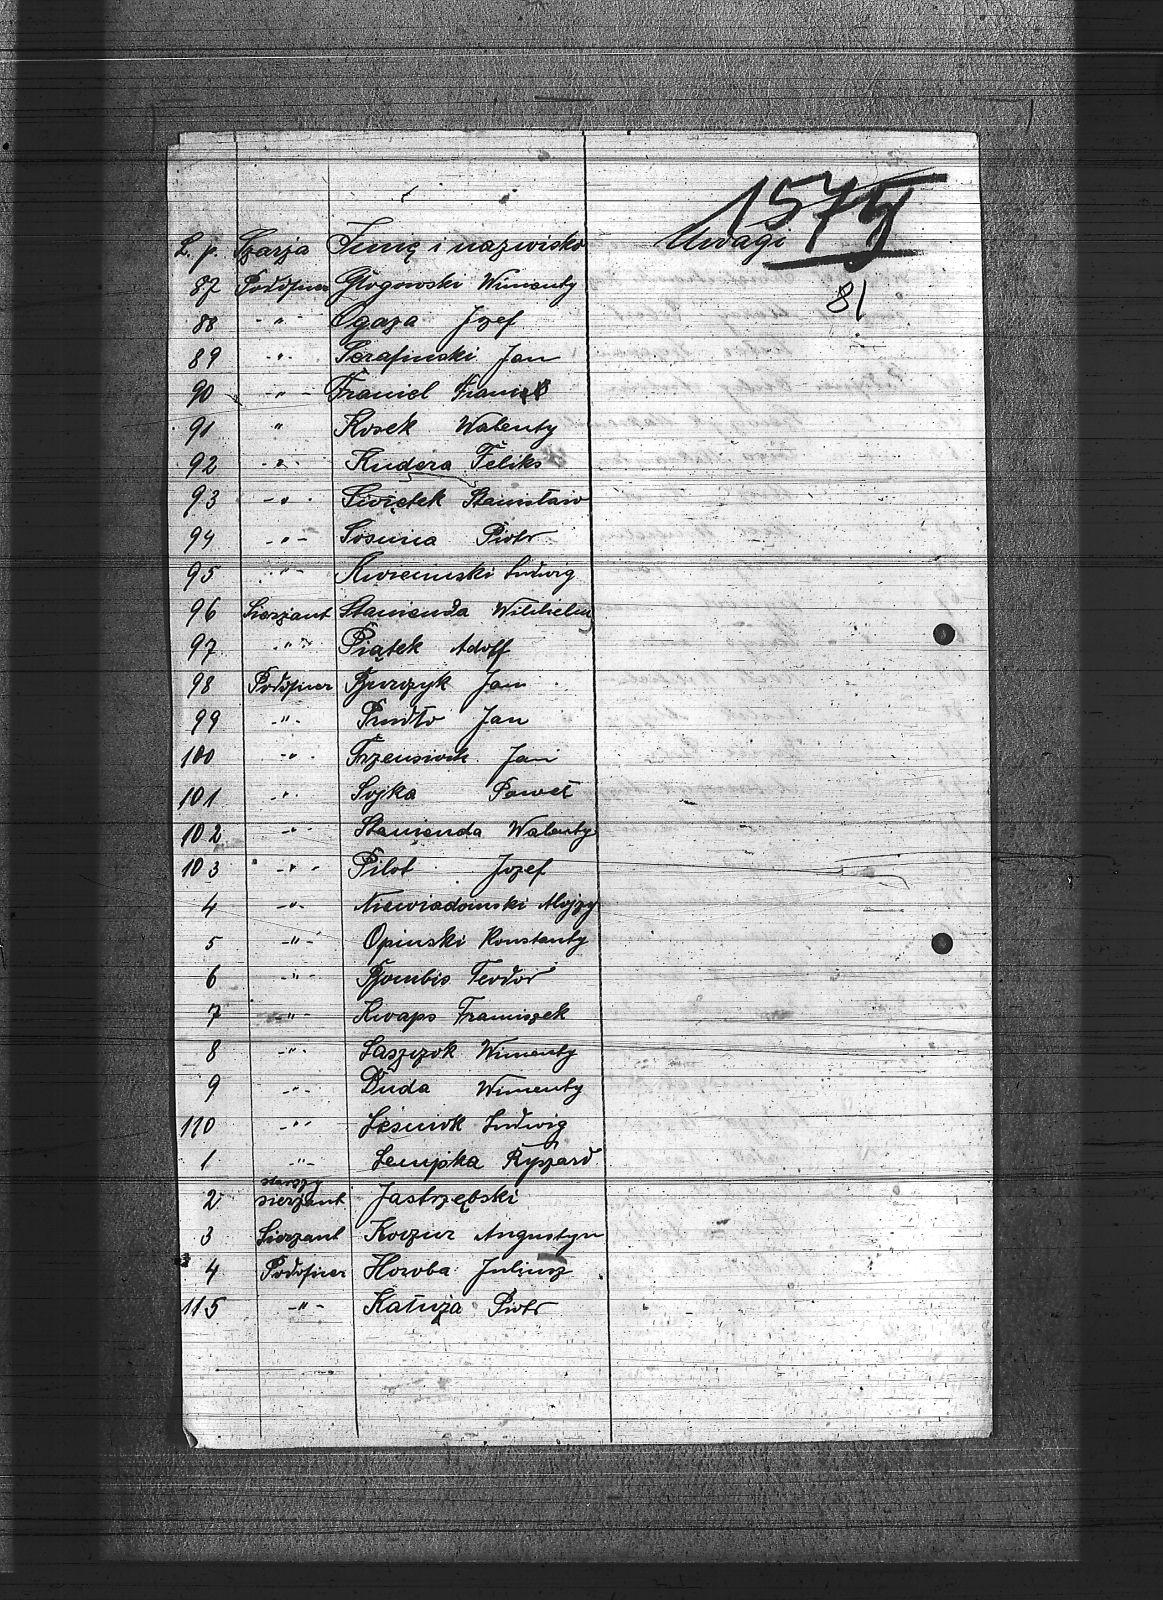 1575
L. p. Szarja Imię i nazwisko Uwagi
81
87 Podoficer Głogowski Wincenty
88 -"- Ogaza Jozef
89 -"- Serafinski Jan
90 -"- Franiel
91 " Kosek Walenty
92 -"- Kudera Feliks
93 -"- Swiętek Stanisław
94 -"- Sosina Piotr
95 -"- Ludwig
96 Sierżant Stanienda Wilhelm
97 -"- Piątek Adolf
98 Podoficer Burczyk Jan
99 -"- Prudło Jan
100 -"- Jan
101 -"- Sojka Paweł
102 -"- Stanienda Walenty
103 -"- Pilot Jozef
4 -"- Niewiadomski Alojzy
5 -"- Opinski Konstanty
6 -"- Teodor
7 -"- Kwaps Franciszek
8 -"- Laszczok Wincenty
9 -"- Duda Wincenty
110 -"- Leśniok Ludwig
1 -"- Lempka Ryszard
2 starszy sierżant Jastrzębski
3 Sierżant Koczur Augustyn
4 Podoficer Horoba Juljusz
115 -"- Kałuża Piotr